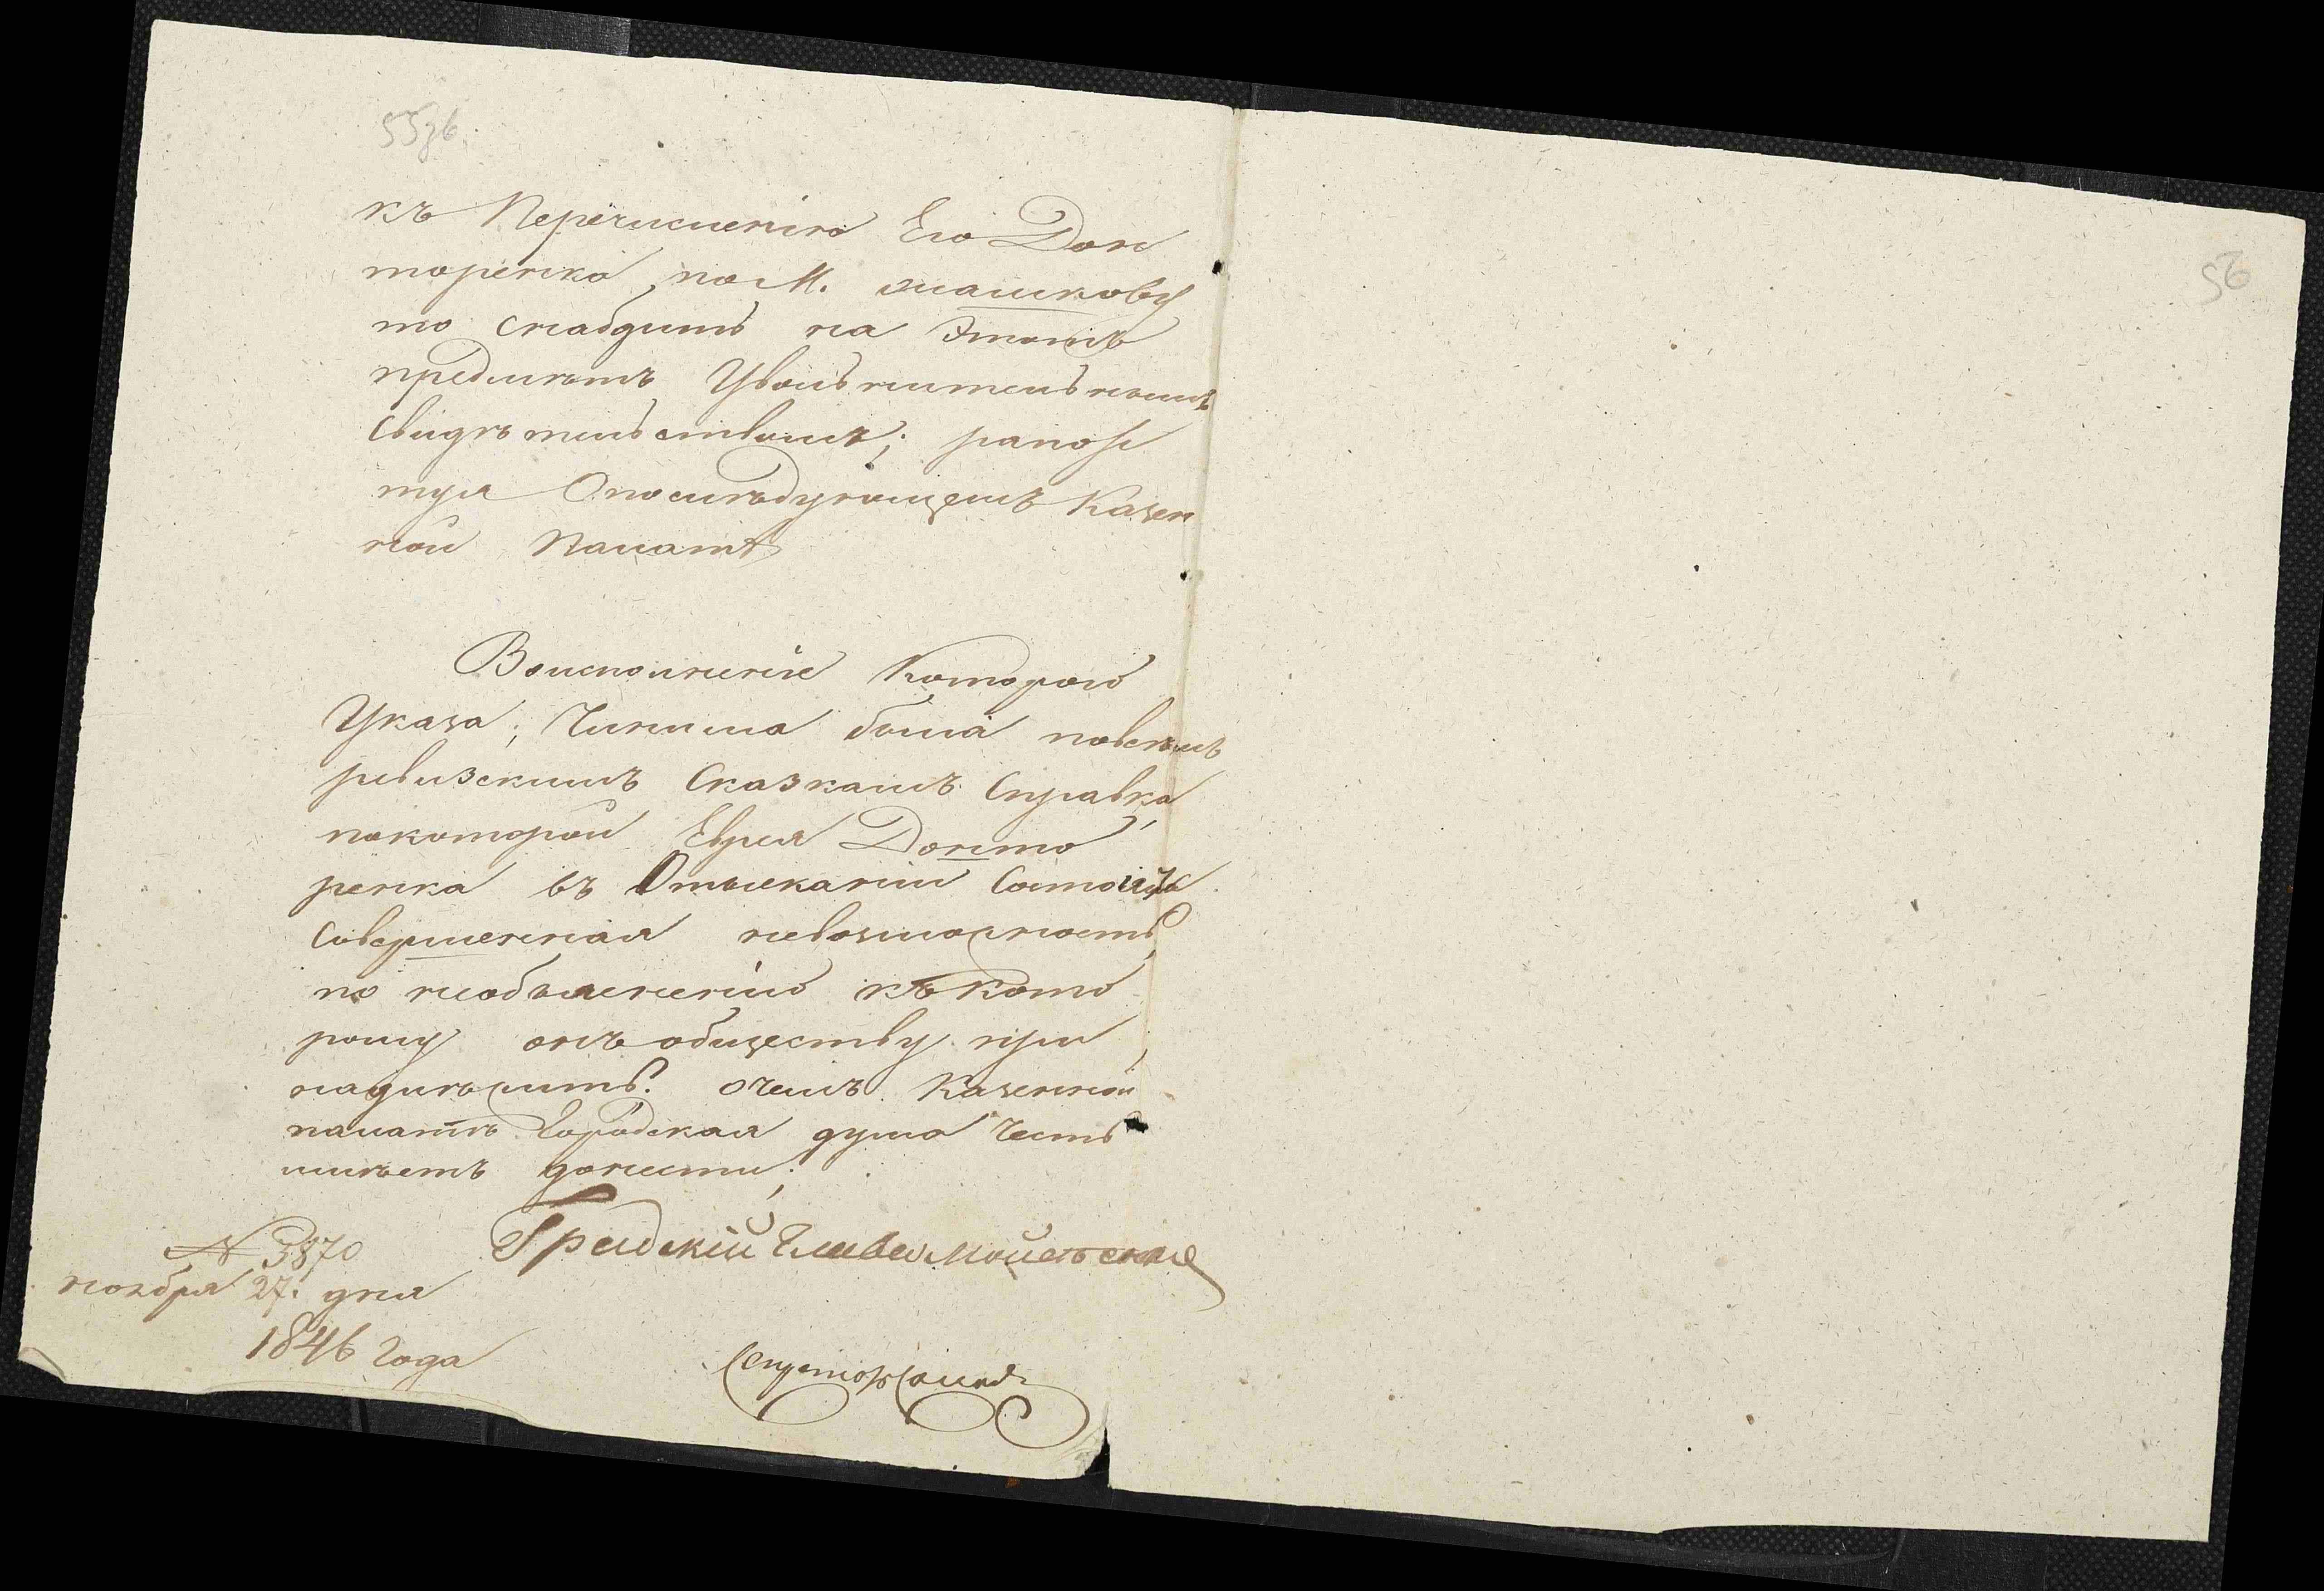 55зв.
къ Перечисленію Его Дон
торенко по М. Машкову
то снабдить на Этотъ
предмѣтъ Увольнительнымъ
свидѣтельствомъ; рапор
туя Опослѣдующемъ Казен
ной Палатѣ
Воисполненіе Котораго
Указа, Чинима была повсѣмъ
ревизскимъ Сказкамъ Справка,
покоторой Еврея Донто
ренка въ Отысканіи Состоитъ
совершенная невозможность,
по необъясненію къ Кото
рому онъ обществу при
надлѣжитъ. очемъ Казенной
палатѣ Городская дума Честь
имѣетъ донести;
Градскій Глава
№ 3870
ноября 27. дня
1846 Года
56